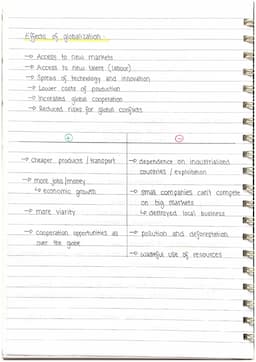 Effects of globalization
→ Access to new markets
→ Access to new talent (labour)
→ Spread of technology and innovation
→ Lower costs of production
→ Increased global cooperation
→ Reduced risks for global conflicts
+
-
→ cheaper products / transport
→ more jobs/money
↳ economic growth
→ more viarity
→ cooperation opportunities all
over the globe
→ dependence on industrialized
countries / exploitation
→ small companies can't compete
on big markets
↳ destroyed local business
→ pollution and deforestation
→ wasteful use of resources